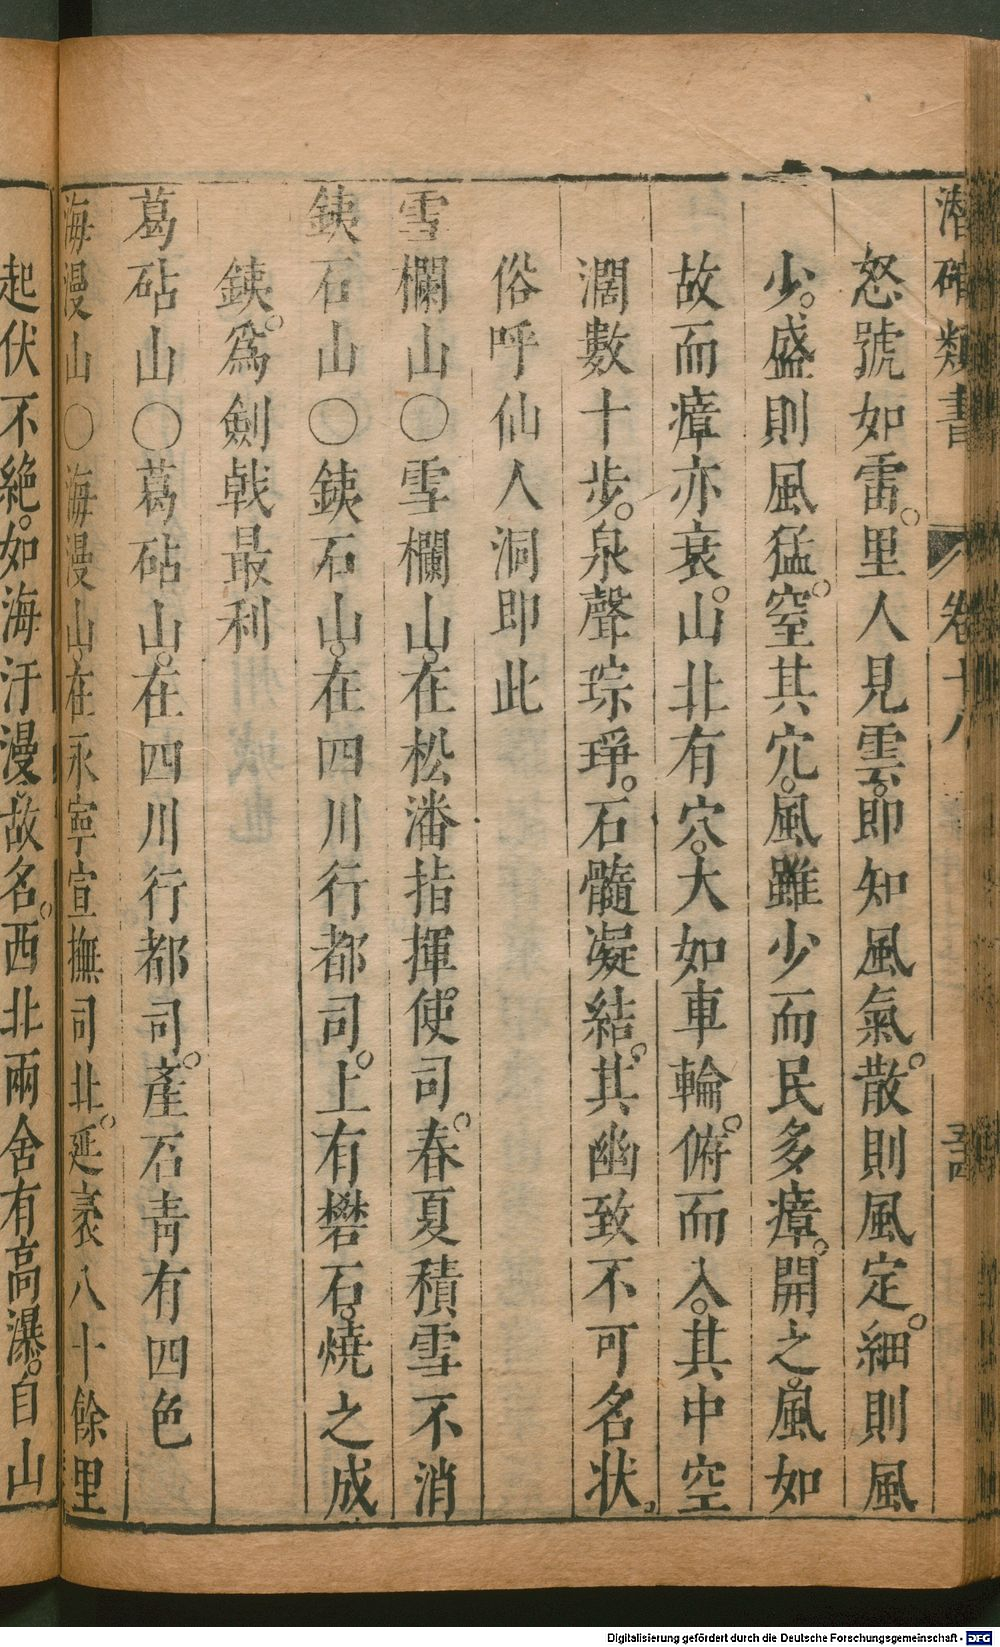 潛確類書 卷十八
怒號如雷。里人見雲。即知風氣。散則風定。細則風
少。盛則風猛。窒其穴。風雖少而民多瘴。開之。風如
故而瘴亦衰。山北有穴。大如車輪。俯而入。其中空
濶數十步。泉聲琮琤。石髓凝結。其幽致不可名狀。
俗呼仙人洞即此
雪欄山○雪欄山。在松潘指揮使司。春夏積雪不消
鉄石山○鉄石山。在四川行都司。上有礬石。燒之成
鉄。爲劍戟最利
葛砧山○葛砧山。在四川行都司。產石青有四色
海漫山○海漫山。在永寧宣撫司北。延袤八十餘里
起伏不絶。如海汙漫。故名。西北兩舍有高瀑。自山
Digitalisierung gefördert durch die Deutsche Forschungsgemeinschaft - DFG